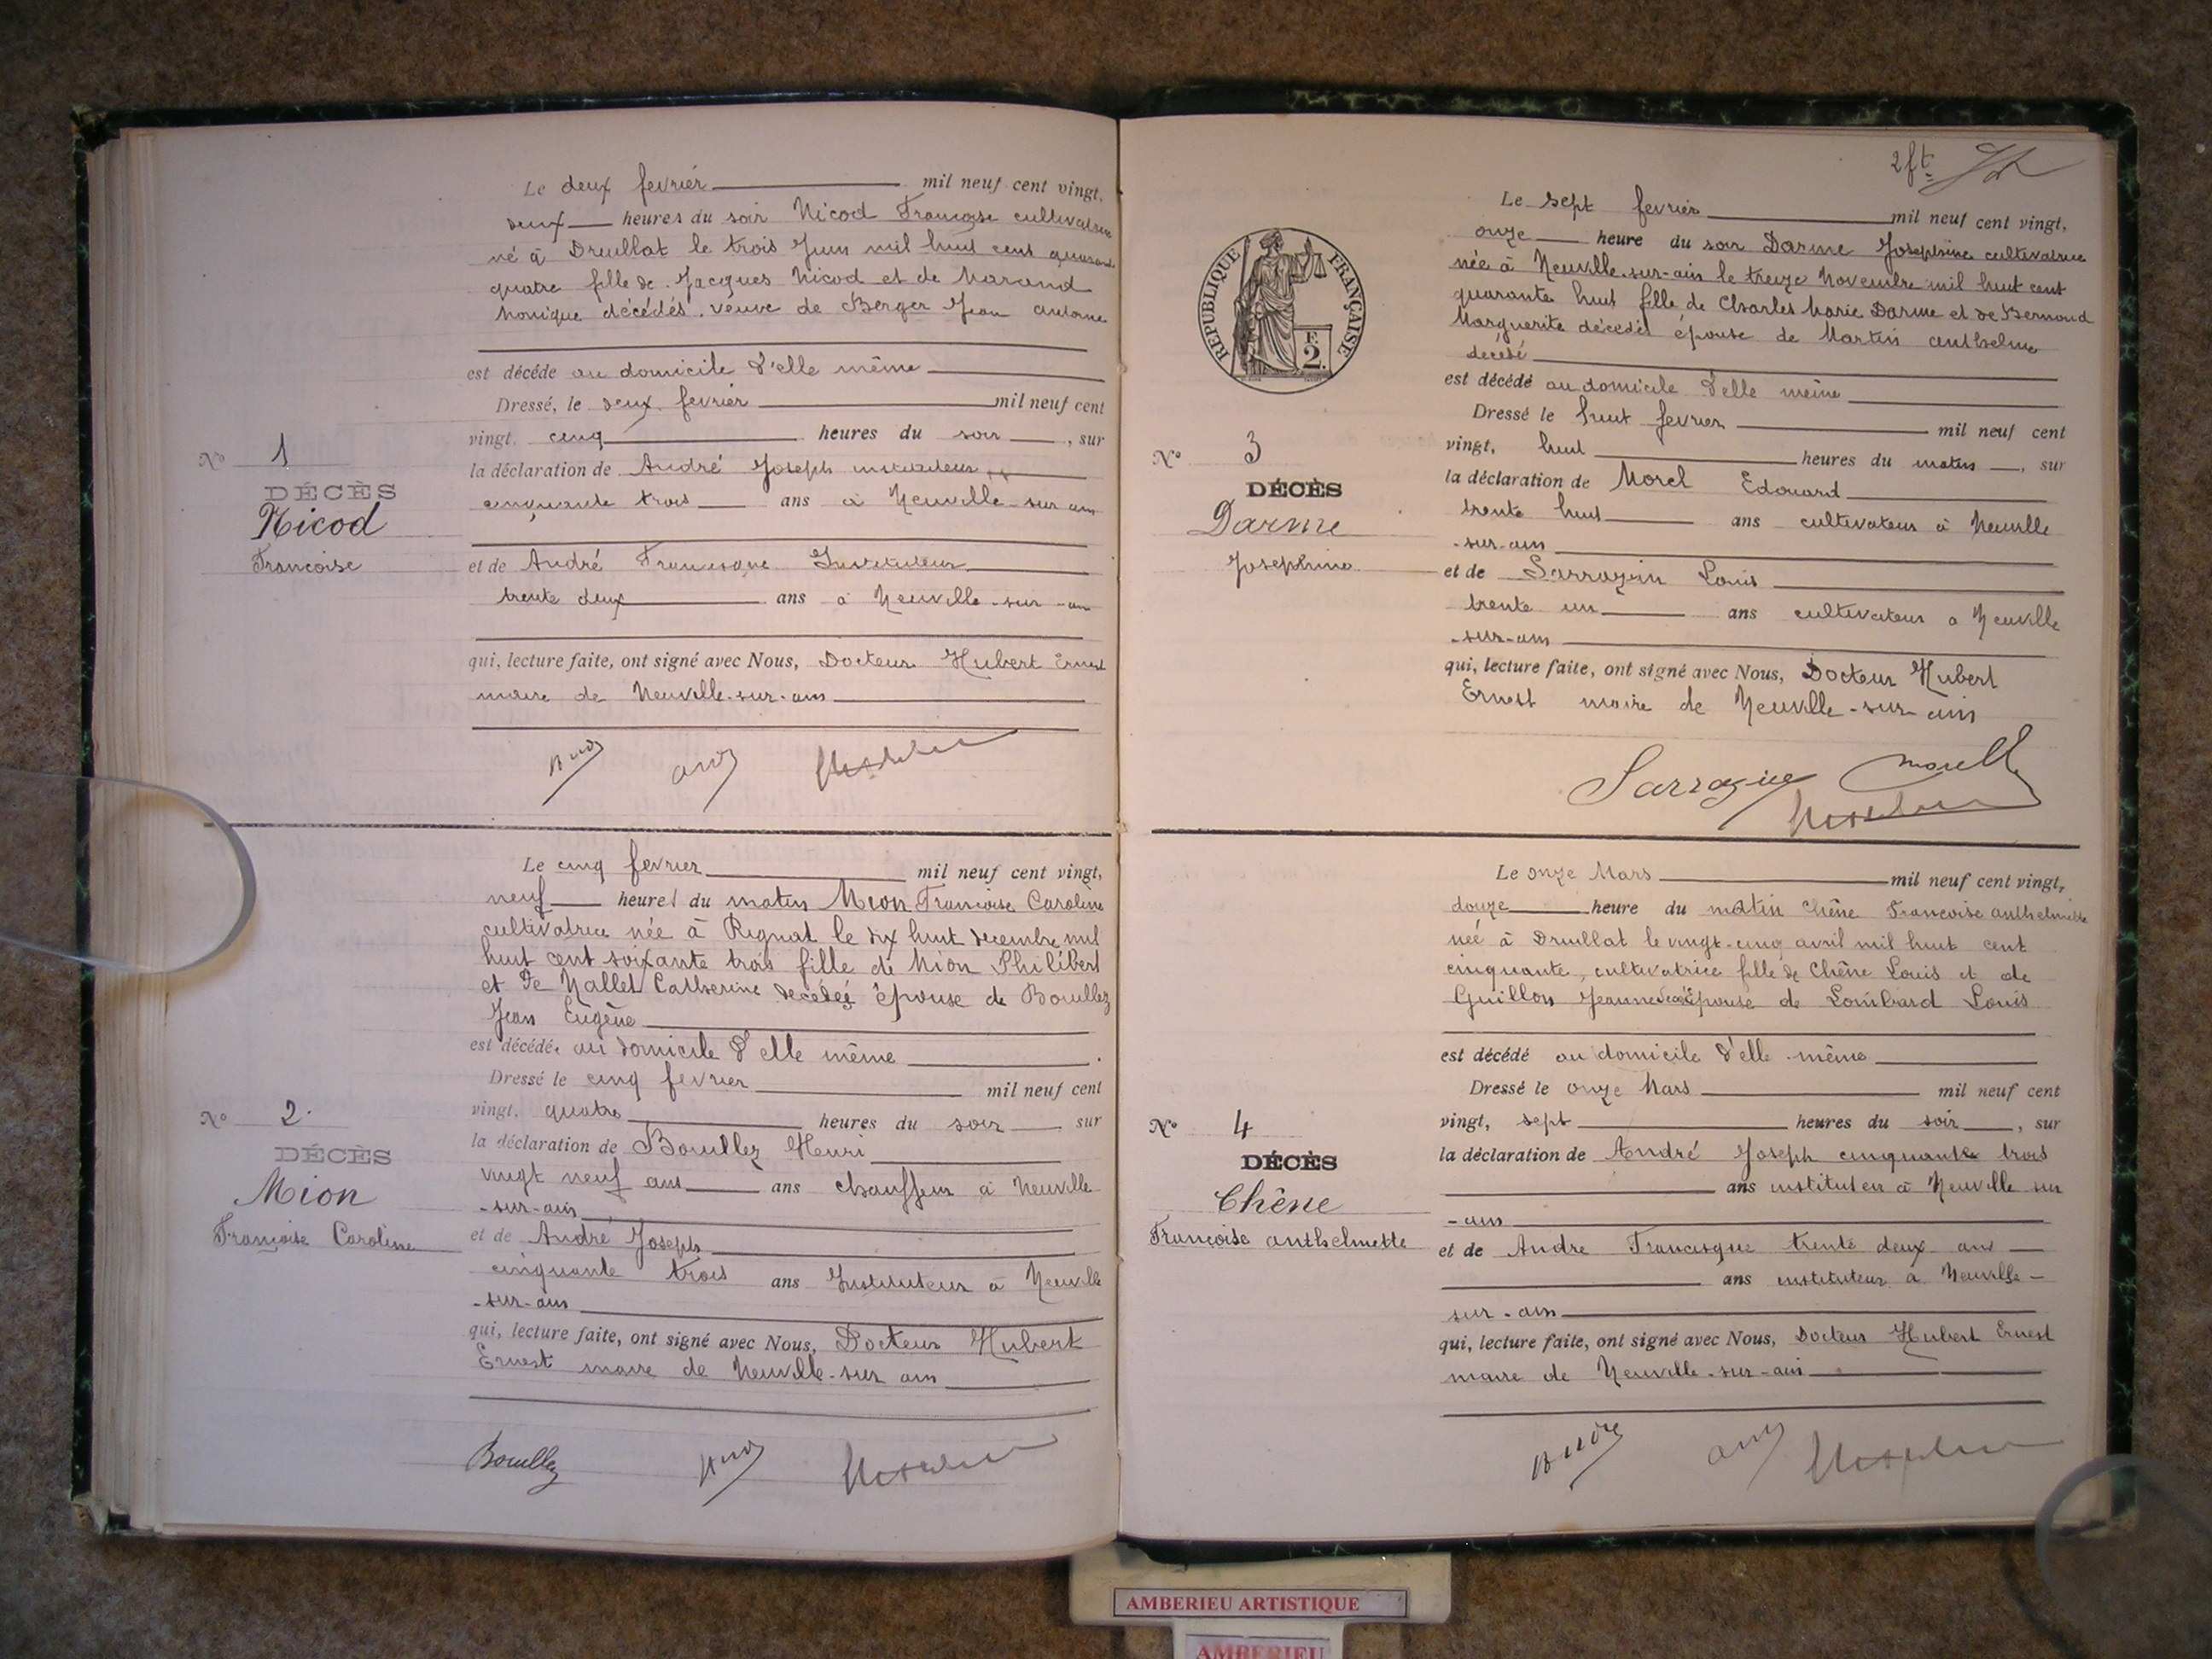 Le deux fevrier mil neuf cent vingt,
deux heures du soir Nicod Françoise cultivatrice
né à Druillat le trois Juin mil huit cent quarante
quatre fille de Jacques Nicod et de Marand
Monique décédés. veuve de Berger Jean antoine
est décédé au domicile d'elle même
Dressé, le deux fevrier mil neuf cent
vingt, cinq heures du soir, sur
N° 1
la déclaration de André Joseph instituteur
DÉCÈS
cinquante trois ans à Neuville-sur ain
Nicod
Françoise
et de André Francisque Instituteur
trente deux ans à Neuville-sur-ain
qui, lecture faite, ont signé avec Nous, Docteur Hubert Ernest
maire de Neuville-sur-ain
Le cinq fevrier mil neuf cent vingt,
neuf heures du matin Mion Françoise Caroline
cultivatrice née à Rignat le dix huit decembre mil
huit cent soixante trois fille de Mion Philibert
et de Nallet Catherine décédés épouse de Bouillez
Jean Eugène
est décédé au domicile d'elle même
Dressé le cinq fevrier mil neuf cent
N° 2.
vingt, quatre heures du soir sur
DÉCÈS
la déclaration de Bouillez Henri
Mion
vingt neuf ans ans chauffeur à Neuville
-sur-ain
Françoise Caroline
et de André Joseph
cinquante trois ans Instituteur à Neuville
-sur-ain
qui, lecture faite, ont signé avec Nous, Docteur Hubert
Ernest maire de Neuville-sur ain
Bouillez
2ft
Le sept fevrier mil neuf cent vingt,
onze heure du soir Darme Josephine cultivatrice
née à Neuville-sur-ain le treize Novembre mil huit cent
quarante huit fille de Charles Marie Darme et de Bernoud
Marguerite décédés épouse de Martin anthelme
décédé
REPUBLIQUE FRANÇAISE
E
2.
est décédé au domicile d'elle même
Dressé le huit fevrier mil neuf cent
N° 3
vingt, huit heures du matin, sur
DÉCÈS
la déclaration de Morel Edouard
Darme
trente huit ans cultivateur à Neuville
-sur-ain
Josephine
et de Sarrazin Louis
trente un ans cultivateur a Neuville
-sur-ain
qui, lecture faite, ont signé avec Nous, Docteur Hubert
Ernest maire de Neuville-sur-ain
Sarrazin Morel
Le onze Mars mil neuf cent vingt,
douze heure du matin Chêne Françoise anthelmette
née à Druillat le vingt-cinq avril mil huit cent
cinquante, cultivatrice fille de Chêne Louis et de
Guillon Jeanne épouse de Lombard Louis
est décédé au domicile d'elle même
Dressé le onze Mars mil neuf cent
N° 4
vingt, sept heures du soir, sur
DÉCÈS
la déclaration de André Joseph cinquante trois
Chêne
ans instituteur à Neuville sur
-ain
Françoise anthelmette
et de Andre Francisque trente deux ans
ans instituteur à Neuville-
sur-ain
qui, lecture faite, ont signé avec Nous, Docteur Hubert Ernest
maire de Neuville-sur-ain
André
AMBERIEU ARTISTIQUE
AMBERIEU